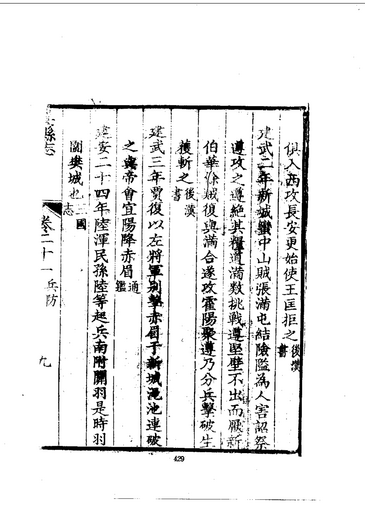 俱入西攻長安更始使王匡拒之後漢書
建武二年新城蠻中山賊張滿屯結險隘為人害詔祭
遵攻之遵絕其糧道滿數挑戰遵堅壁不出而厭新
伯華餘賊復與滿合遂攻霍陽聚遵乃分兵擊破生
獲斬之後漢書
建武三年賈復以左將軍別擊赤眉于新城澠池連破
之與帝會宜陽降赤眉通鑑
建安二十四年陸渾民孫陸等起兵南附關羽是時羽
圍樊城也三國志
縣志
卷二十一
兵防
九
429